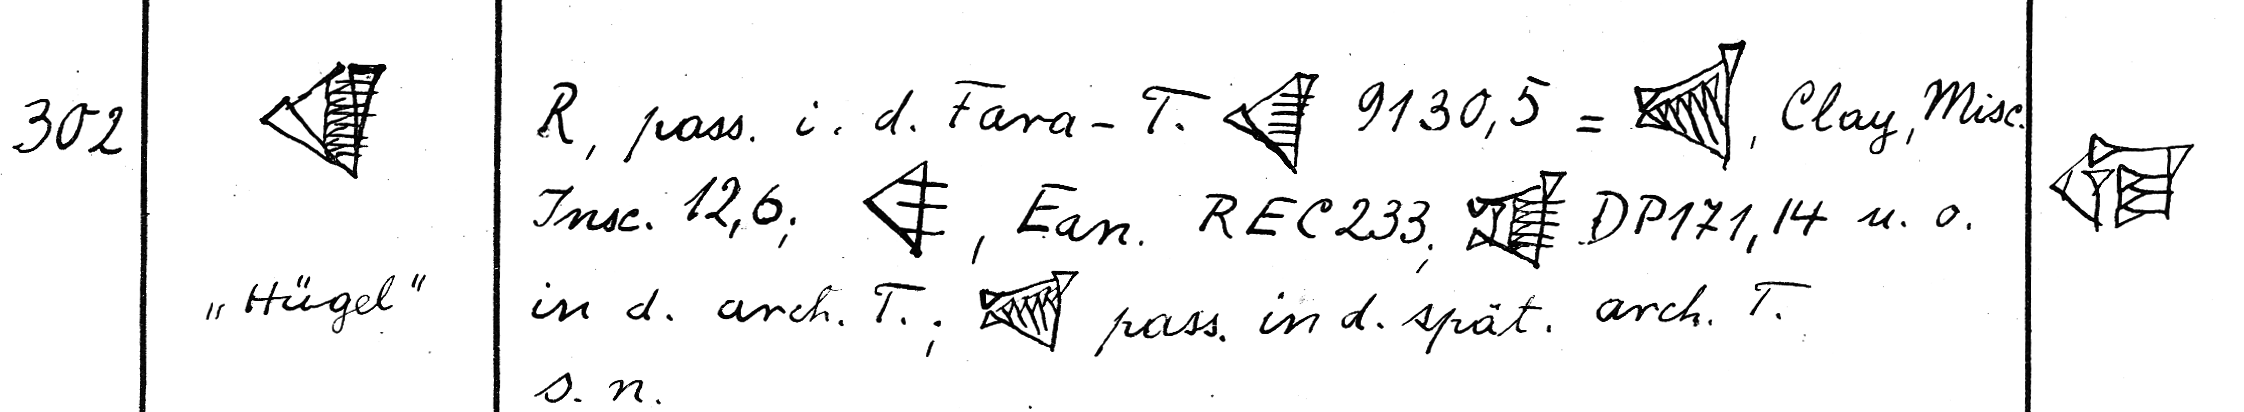 302
R, pass. i. d. Fara-T. 9130,5 = , Clay, Misc.
Insc. 12,6; , Ean. REC 233; DP 171, 14 u. o.
„Hügel“
in d. arch. T.; pass. in d. spät. arch. T.
s. n.